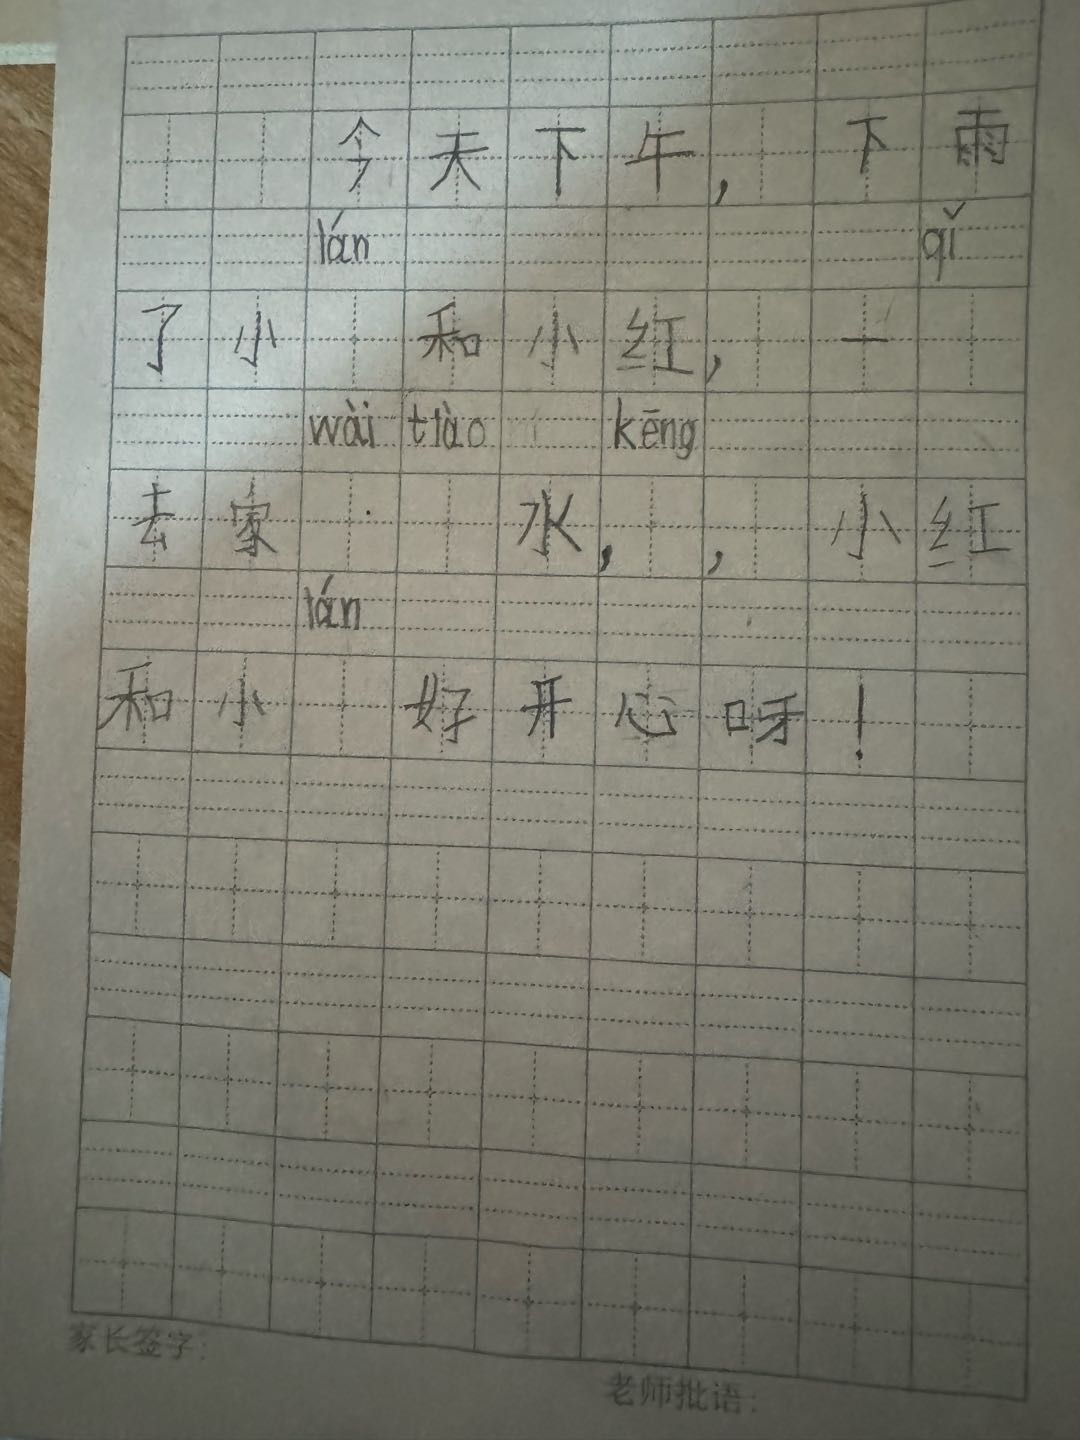 今天下午,下雨
lán qǐ
了小 和小红,一
wài tiào kēng
去家 水,,小红
lán
和小 好开心呀!
家长签字:
老师批语: